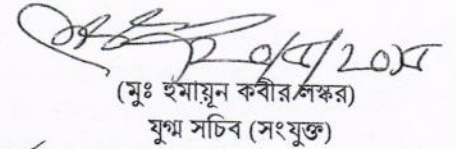 ২০/৫/২০১৫
(মুঃ হুমায়ূন কবীর লস্কর)
যুগ্ম সচিব (সংযুক্ত)